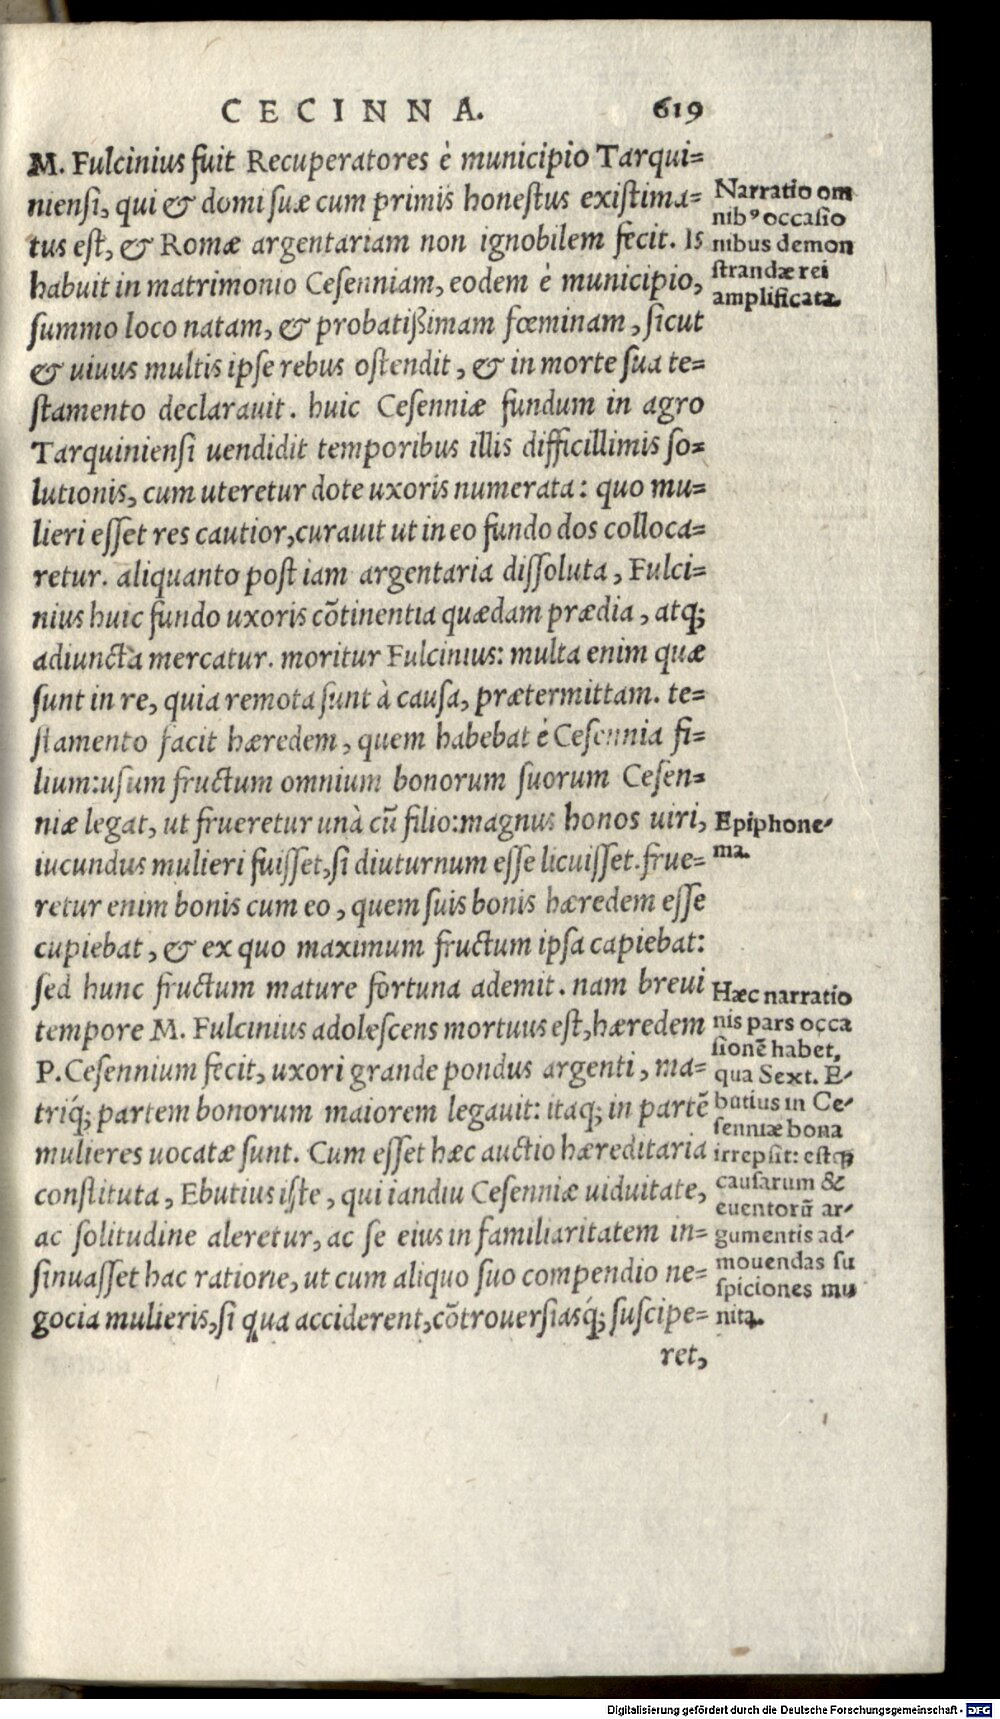 CECINNA. 619
M. Fulcinius fuit Recuperatores è municipio Tarqui=
niensi, qui & domi suæ cum primis honestus existima=
tus est, & Romæ argentariam non ignobilem fecit. Is
habuit in matrimonio Cesenniam, eodem è municipio,
summo loco natam, & probatißimam fœminam, sicut
& uiuus multis ipse rebus ostendit, & in morte sua te=
stamento declarauit. huic Cesenniæ fundum in agro
Tarquiniensi uendidit temporibus illis difficillimis so=
lutionis, cum uteretur dote uxoris numerata: quo mu=
lieri esset res cautior, curauit ut in eo fundo dos colloca=
retur. aliquanto post iam argentaria dissoluta, Fulci=
nius huic fundo uxoris cõtinentia quædam prædia, atq;
adiuncta mercatur. moritur Fulcinius: multa enim quæ
sunt in re, quia remota sunt à causa, prætermittam. te=
stamento facit hæredem, quem habebat è Cesennia fi=
lium: usum fructum omnium bonorum suorum Cesen=
niæ legat, ut frueretur unà cũ filio: magnus honos uiri,
iucundus mulieri fuisset, si diuturnum esse licuisset. frue=
retur enim bonis cum eo, quem suis bonis hæredem esse
cupiebat, & ex quo maximum fructum ipsa capiebat:
sed hunc fructum mature fortuna ademit. nam breui
tempore M. Fulcinius adolescens mortuus est, hæredem
P. Cesennium fecit, uxori grande pondus argenti, ma=
triq́; partem bonorum maiorem legauit: itaq; in partẽ
mulieres uocatæ sunt. Cum esset hæc auctio hæreditaria
constituta, Ebutius iste, qui iandiu Cesenniæ uiduitate,
ac solitudine aleretur, ac se eius in familiaritatem in=
sinuasset hac ratione, ut cum aliquo suo compendio ne=
gocia mulieris, si qua acciderent, cõtrouersiasq́; suscipe=
ret,
Narratio om
nibꝰ occasio
nibus demon
strandæ rei
amplificata.
Epiphone-
ma.
Hæc narratio
nis pars occa
sionẽ habet,
qua Sext. E-
butius in Ce-
senniæ bona
irrepsit: estq;
causarum &
euentorũ ar-
gumentis ad-
mouendas su
spiciones mu
nita.
Digitalisierung gefördert durch die Deutsche Forschungsgemeinschaft - DFG